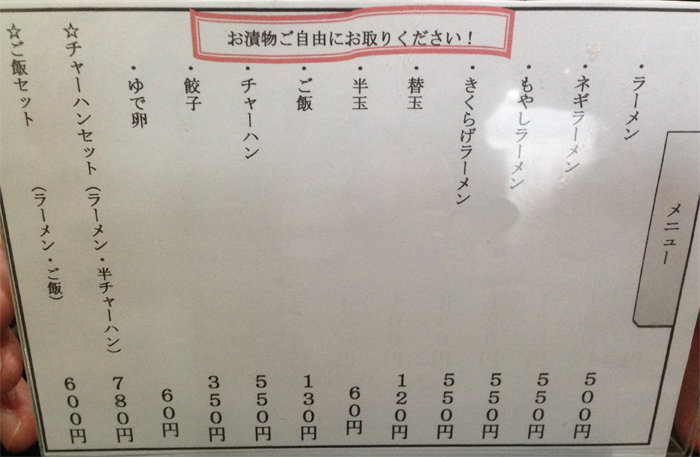 お漬物ご自由にお取りください！
メニュー
・ラーメン ５００円
・ネギラーメン ５５０円
・もやしラーメン ５５０円
・きくらげラーメン ５５０円
・替玉 １２０円
・半玉 ６０円
・ご飯 １３０円
・チャーハン ５５０円
・餃子 ３５０円
・ゆで卵 ６０円
☆チャーハンセット（ラーメン・半チャーハン） ７８０円
☆ご飯セット （ラーメン・ご飯） ６００円